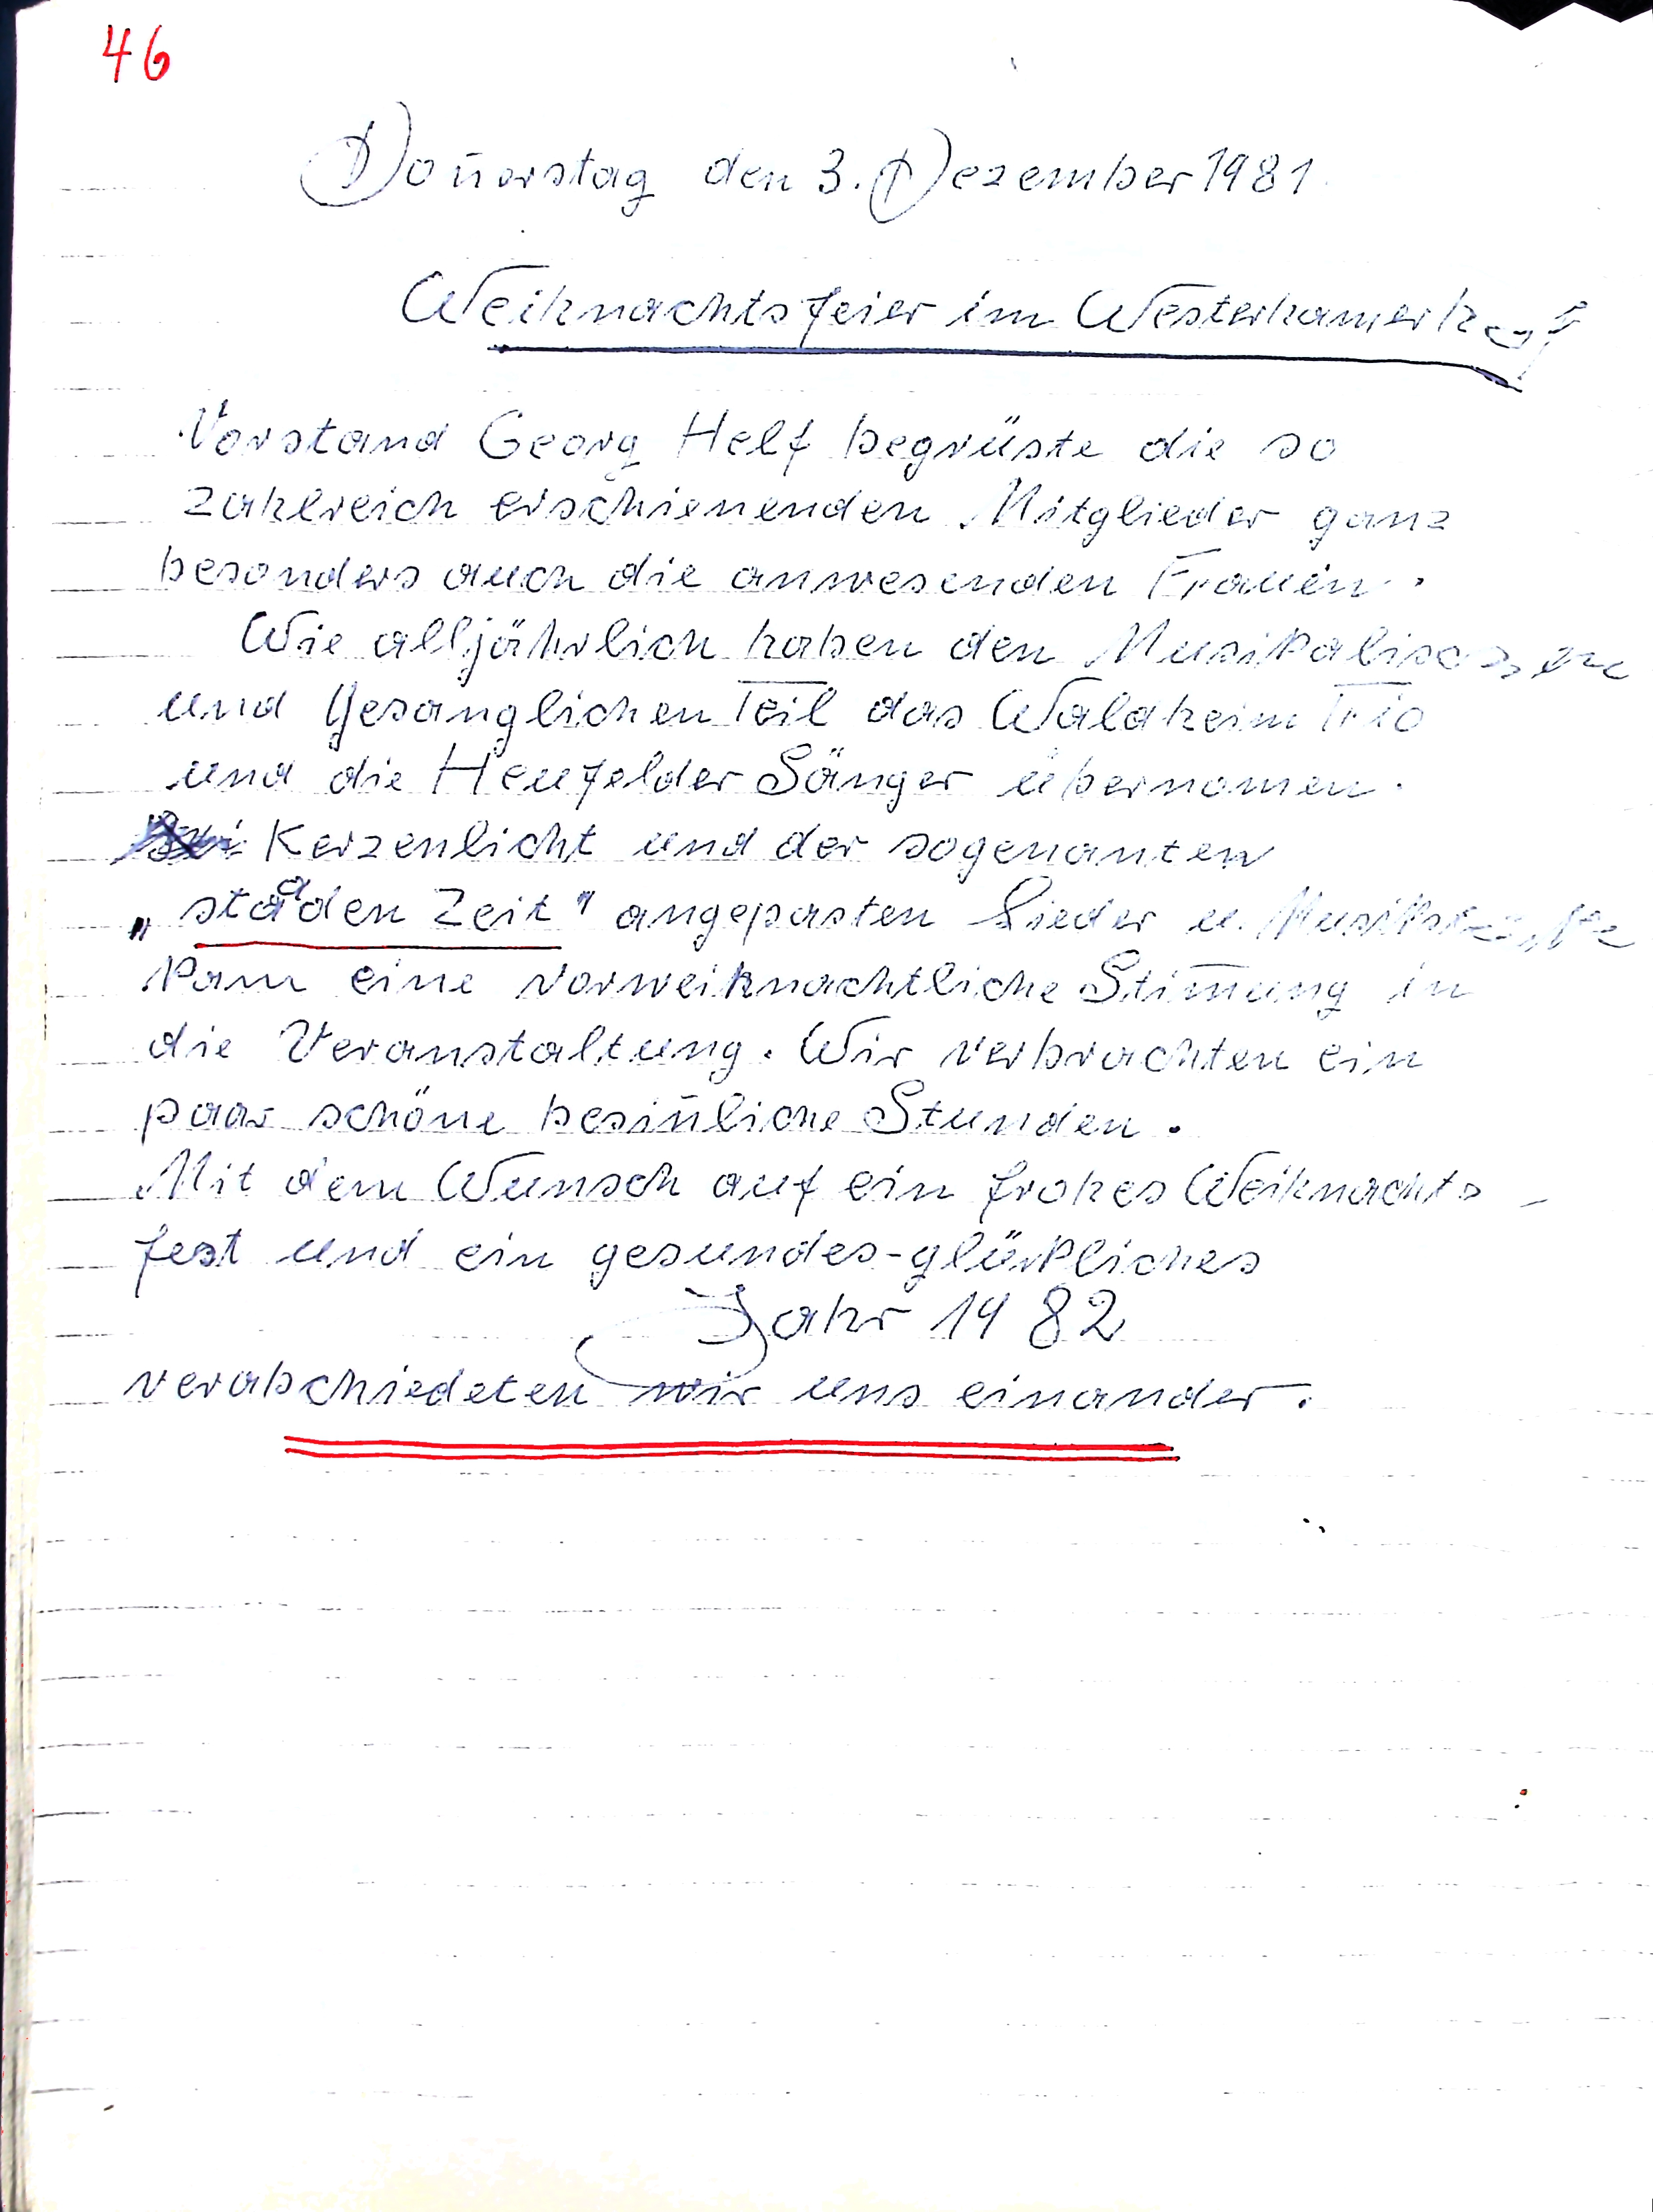 46
Doñerstag den 3. Dezember 1981
Weihnachtsfeier im Westerhamerhof
Vorstand Georg Helf begrüste die so
zahlreich erschienenden Mitglieder ganz
besonders auch die anwesenden Frauen.
Wie alljährlich haben den Musikalischen
und Gesanglichen Teil das Waldheim Trio
und die Heufelder Sänger übernomen.
Bei Kerzenlicht und der sogenanten
„staaden Zeit" angepasten Lieder u. Musikstücke
kam eine vorweihnachtliche Stim̄ung in
die Veranstaltung. Wir verbrachten ein
paar schöne besiñliche Stunden.
Mit dem Wunsch auf ein frohes Weihnachts-
fest und ein gesundes-glückliches
Jahr 1982
verabschiedeten wir uns einander.